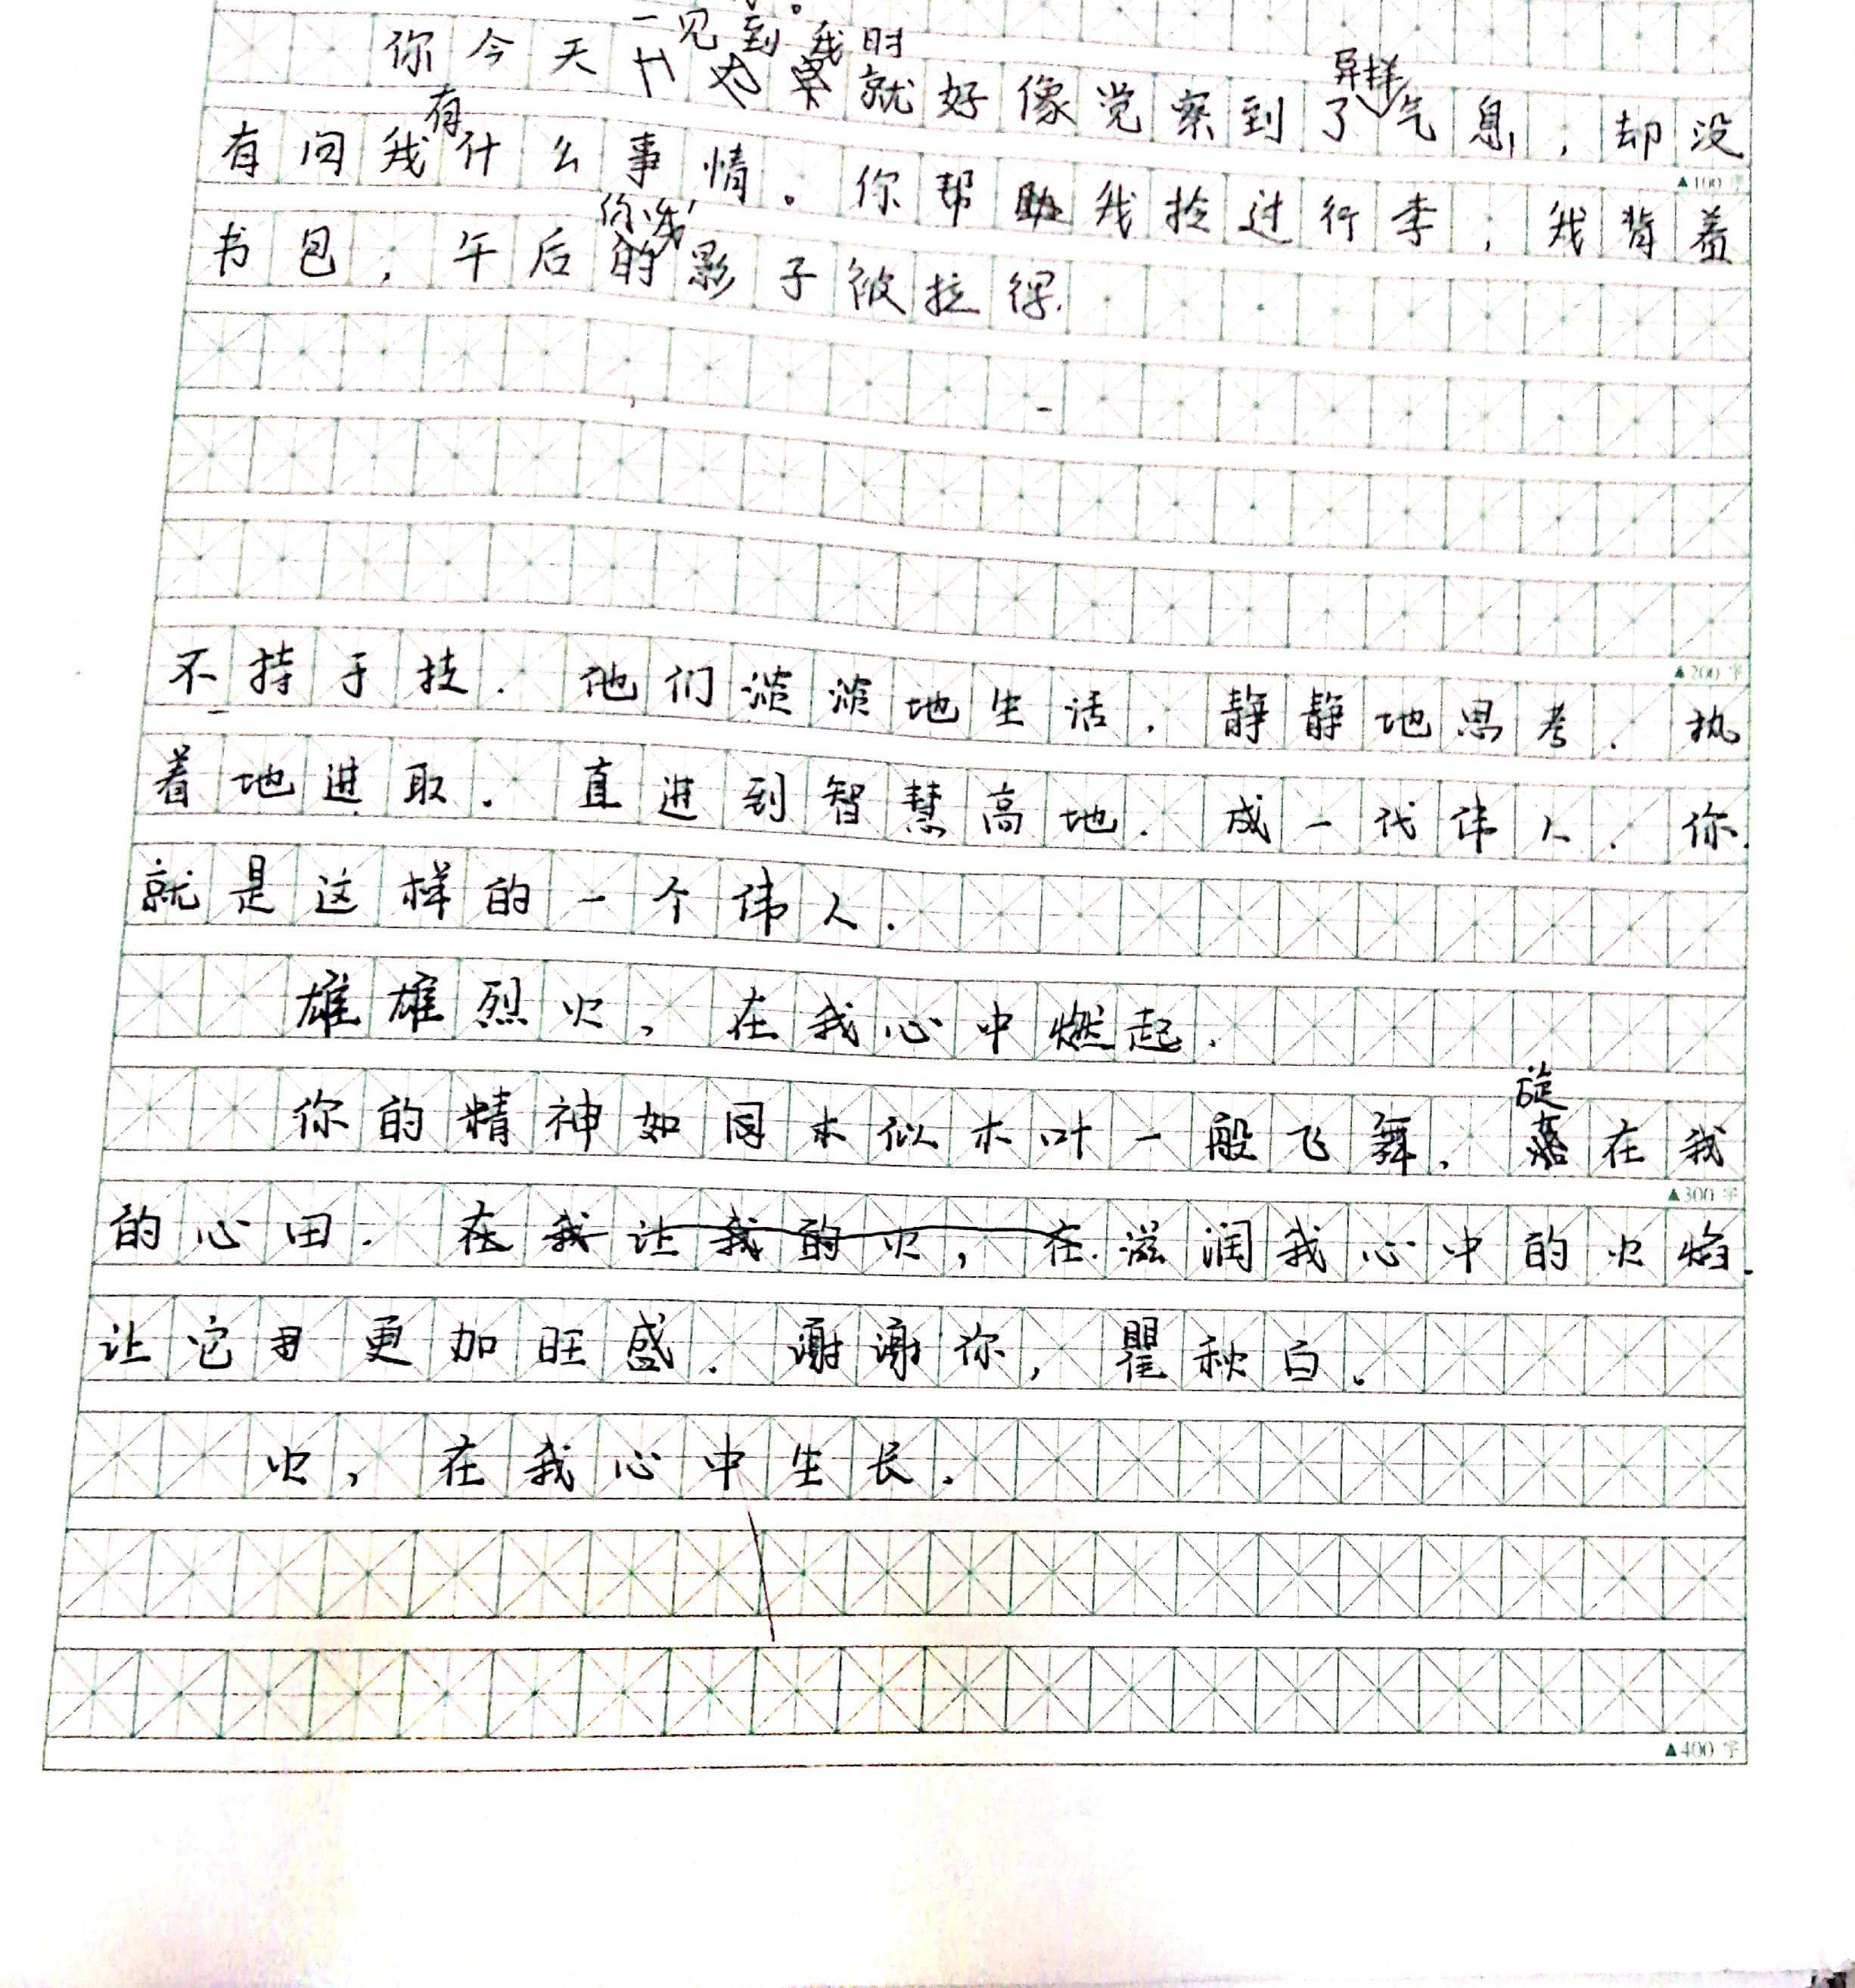 一见到我时
你今天就好像觉察到了异样气息,却没
有问我有什么事情。你帮助我拎过行李,我背着
书包,午后你我影子被拉得.
▲100字
▲200字
不持于技.他们淡淡地生活.静静地思考.执
着地进取.直进到智慧高地.成一代伟人.你
就是这样的一个伟人.
雄雄烈火,在我心中燃起.
旋
你的精神如同木似木叶一般飞舞.落在我
▲300字
的心田.在我让我的火,在.滋润我心中的火焰.
让它更加旺盛.谢谢你,瞿秋白。
火,在我心中生长.
▲400字